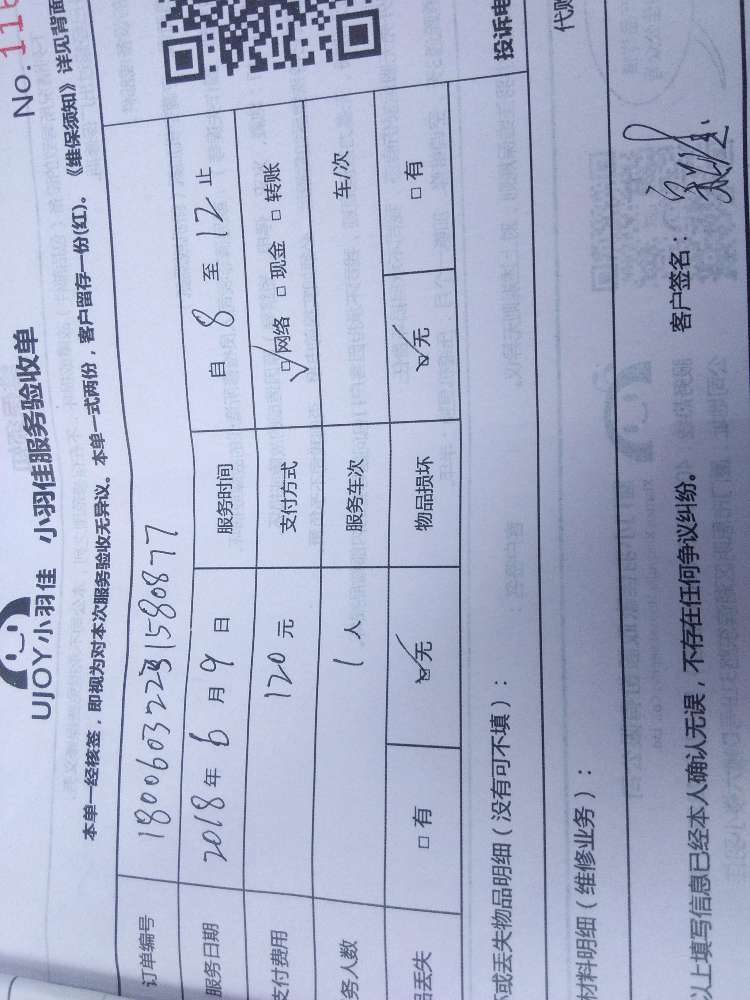 No. 116
UJOY小羽佳 小羽佳服务验收单
本单一经核签，即视为对本次服务验收无异议。本单一式两份，客户留存一份(红)。《维保须知》详见背面
订单编号 1806032231580877
服务日期 2018年6月9日 服务时间 自8至12止
支付费用 120元 支付方式 □网络 □现金 □转账
务人数 1人 服务车次 车/次
品丢失 □有 □无 物品损坏 □无 □有
坏或丢失物品明细（没有可不填）： 投诉电
材料明细（维修业务）： 代购
以上填写信息已经本人确认无误，不存在任何争议纠纷。 客户签名：